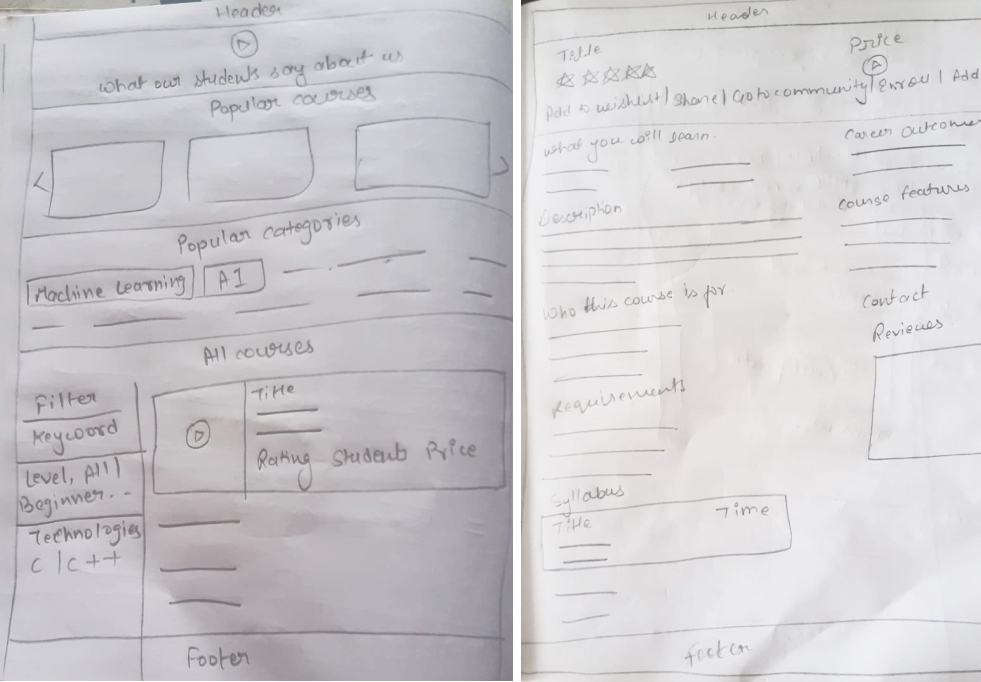 Header
what our students say about us
Popular courses
Popular categories
Machine Learning
AI
All courses
Filter
Keyword
Level, All |
Beginner...
Technologies
C | C++
Title
Rating Students Price
Footer
Header
Title
Price
Add to wishlist | Share | Go to community | Enroll | Add
what you will learn.
Career outcome
Description
Course features
Who this course is for
Contact
Reviews
Requirements
Syllabus
Title
Time
footer